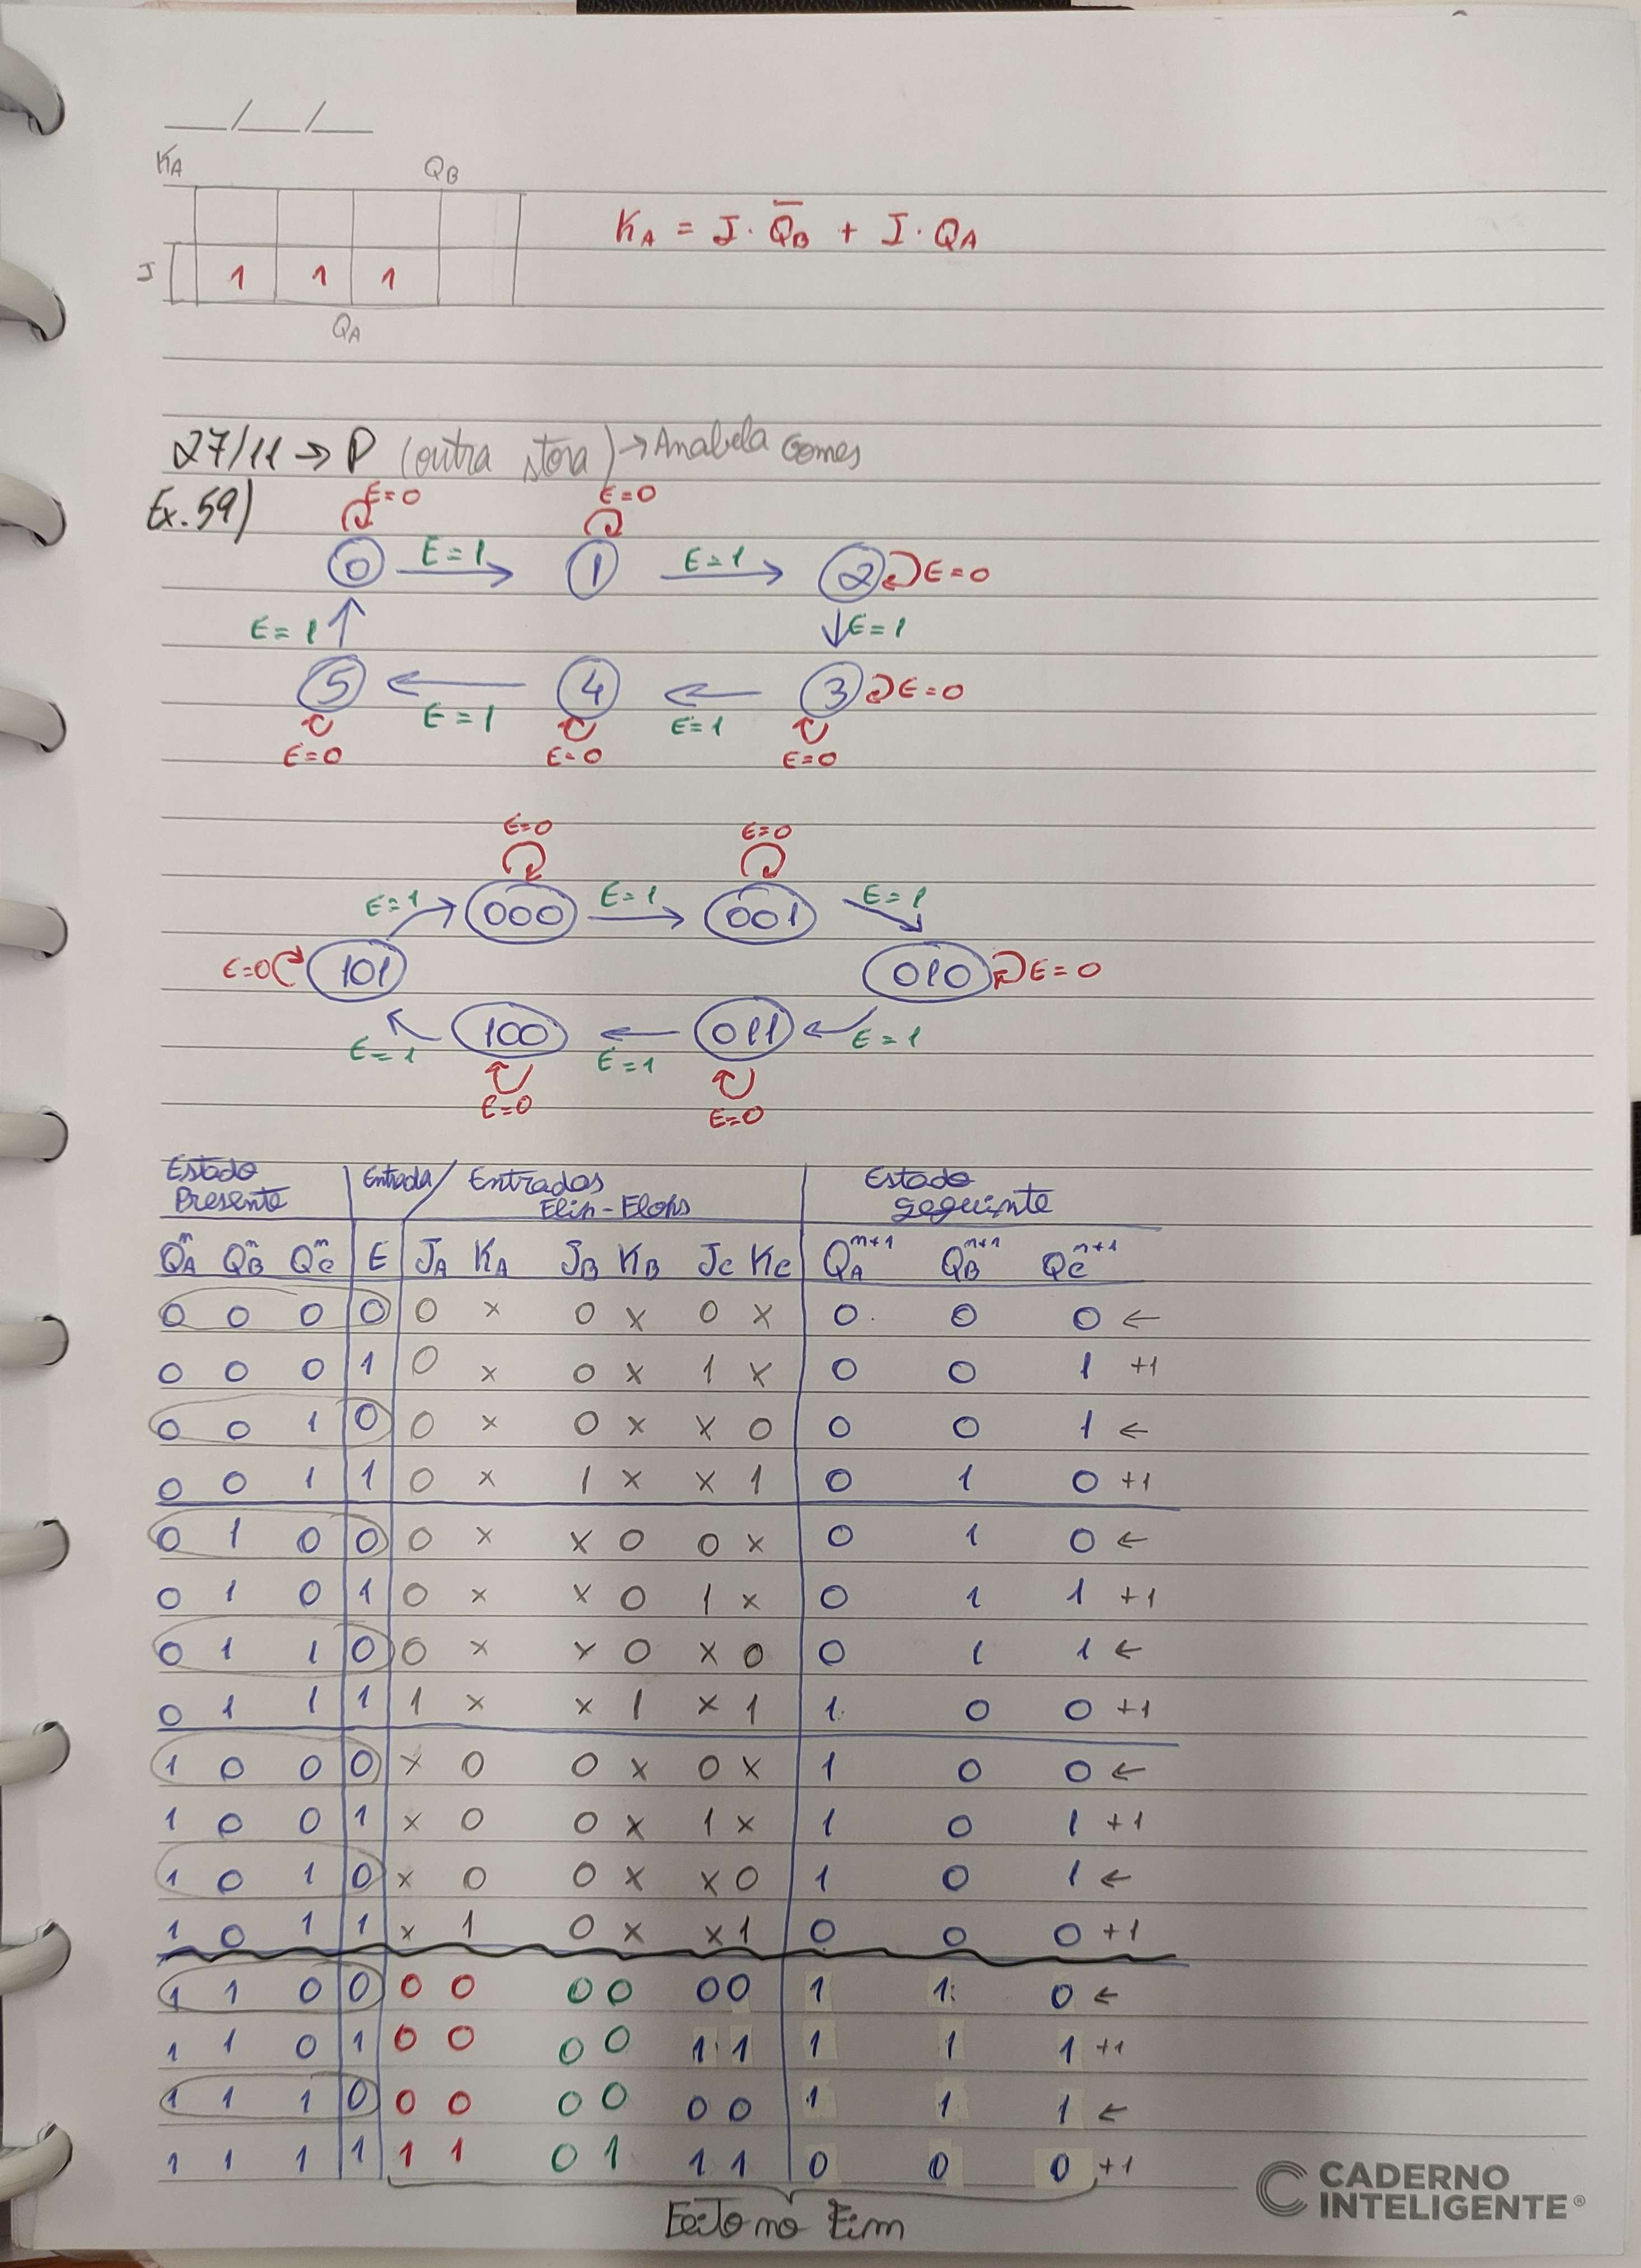 __/__/__
KA QB
KA = J·Q̅B + J·QA
J 1 1 1
QA
27/11 → P (outra stora) → Anabela Gomes
Ex. 59)
E=0 E=0
0 E=1 1 E=1 2 E=0
E=1 E=1
5 4 3 E=0
E=1 E=1
E=0 E=0 E=0
E=0 E=0
E=1 000 E=1 001 E=1
E=0 101 010 E=0
E=1 100 E=1 011 E=1
E=0 E=0
Estado Presente Entrada Entradas Flip-Flops Estado Seguinte
QAⁿ QBⁿ QCⁿ E JA KA JB KB JC KC QAⁿ⁺¹ QBⁿ⁺¹ QCⁿ⁺¹
0 0 0 0 0 x 0 x 0 x 0 0 0 ←
0 0 0 1 0 x 0 x 1 x 0 0 1 +1
0 0 1 0 0 x 0 x x 0 0 0 1 ←
0 0 1 1 0 x 1 x x 1 0 1 0 +1
0 1 0 0 0 x x 0 0 x 0 1 0 ←
0 1 0 1 0 x x 0 1 x 0 1 1 +1
0 1 1 0 0 x x 0 x 0 0 1 1 ←
0 1 1 1 1 x x 1 x 1 1 0 0 +1
1 0 0 0 x 0 0 x 0 x 1 0 0 ←
1 0 0 1 x 0 0 x 1 x 1 0 1 +1
1 0 1 0 x 0 0 x x 0 1 0 1 ←
1 0 1 1 x 1 0 x x 1 0 0 0 +1
1 1 0 0 0 0 0 0 0 0 1 1 0 ←
1 1 0 1 0 0 0 0 1 1 1 1 1 +1
1 1 1 0 0 0 0 0 0 0 1 1 1 ←
1 1 1 1 1 1 0 1 1 1 0 0 0 +1
Feito no Fim
CADERNO
INTELIGENTE®